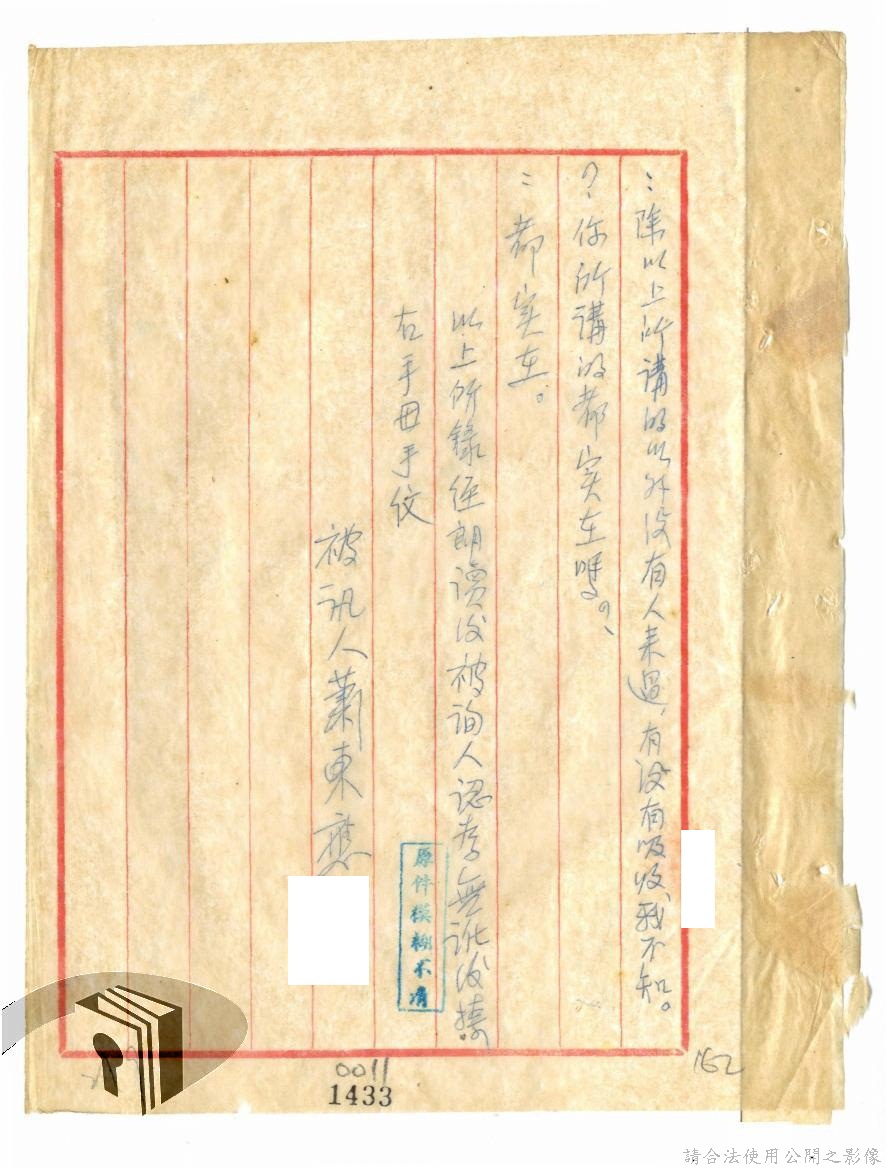 ：除以上所講的以外沒有人来過，有沒有吸收我不知。
？你所講的都实在嗎？
：都实在。
以上所錄經朗讀後被詢人認為無訛後捺
右手母手紋
被訊人蕭東應
原件模糊不清
162
0011
1433
請合法使用公開之影像